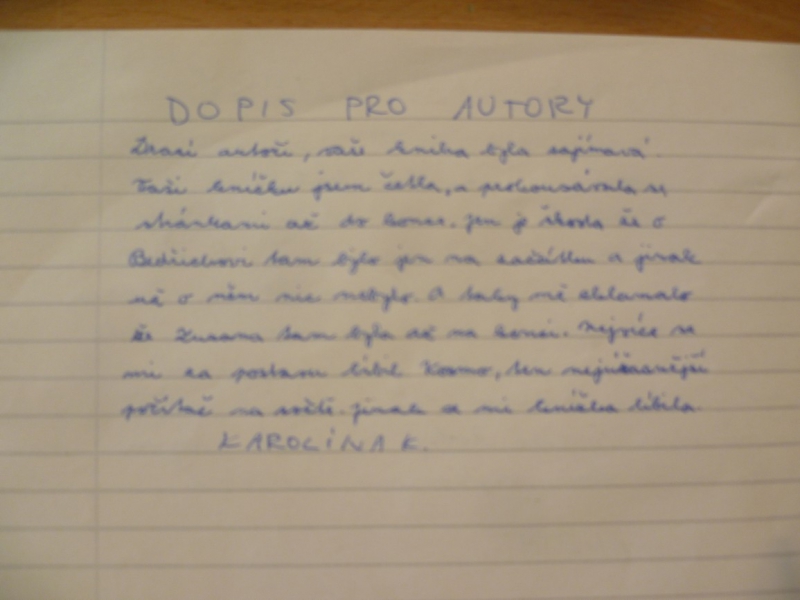 DOPIS PRO AUTORY
Drazí autoři, vaše kniha byla zajímavá.
Vaši knížku jsem četla, a prokousávala se
stránkami až do konce. Jen je škoda že o
Bedřichovi tam bylo jen na začátku a jinak
už o něm nic nebylo. A taky mě zklamalo
že Zuzana tam byla až na konci. Nejvíce se
mi za postavu líbil Kosmo, ten nejúžasnější
počítač na světě. Jinak se mi knížka líbila.
KAROLÍNA K.